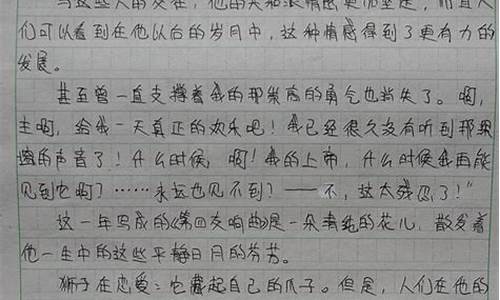 与这些人的交往，他的共和派情感更加坚定，而且人
们可以看到在他以后的岁月中，这种情感得到了更有力的
发展。
甚至曾一直支撑着我的那崇高的勇气也消失了。啊，
主啊，给我一天真正的欢乐吧！我已经很久没有听到那
的声音了！什么时候，啊！我的上帝，什么时候我再能
见到它啊？……永远也见不到？——不，这太残忍了！"
这一年写成的《第四交响曲》是一朵清纯的花儿，散发着
他一生中的这些平静日月的芬芳。
狮子在恋爱：它藏起自己的爪子。但是，人们在他的